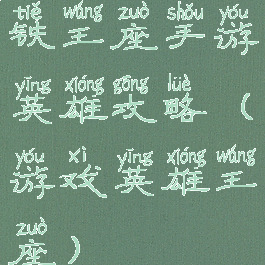 tiě wáng zuò shǒu yóu
铁王座手游
yīng xióng gōng lüè
英雄攻略（
yóu xì yīng xióng wáng
游戏英雄王
zuò
座）